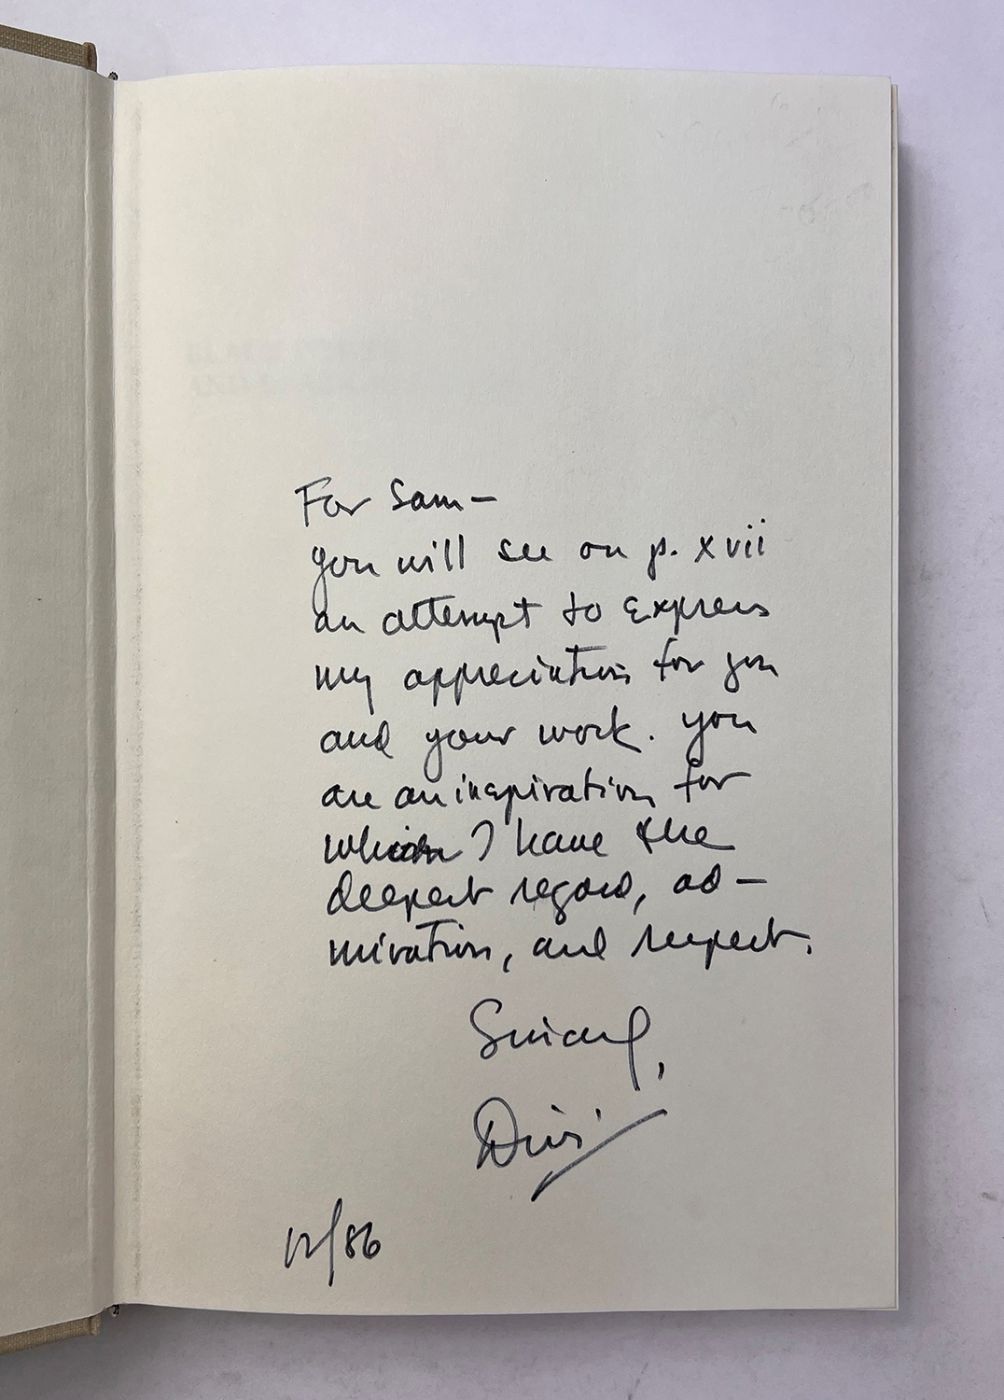 For Sam—
you will see on p. xvii
an attempt to express
my appreciation for you
and your work. you
are an inspiration for
which I have the
deepest regard, ad-
miration, and respect.
Sincerely,
12/86